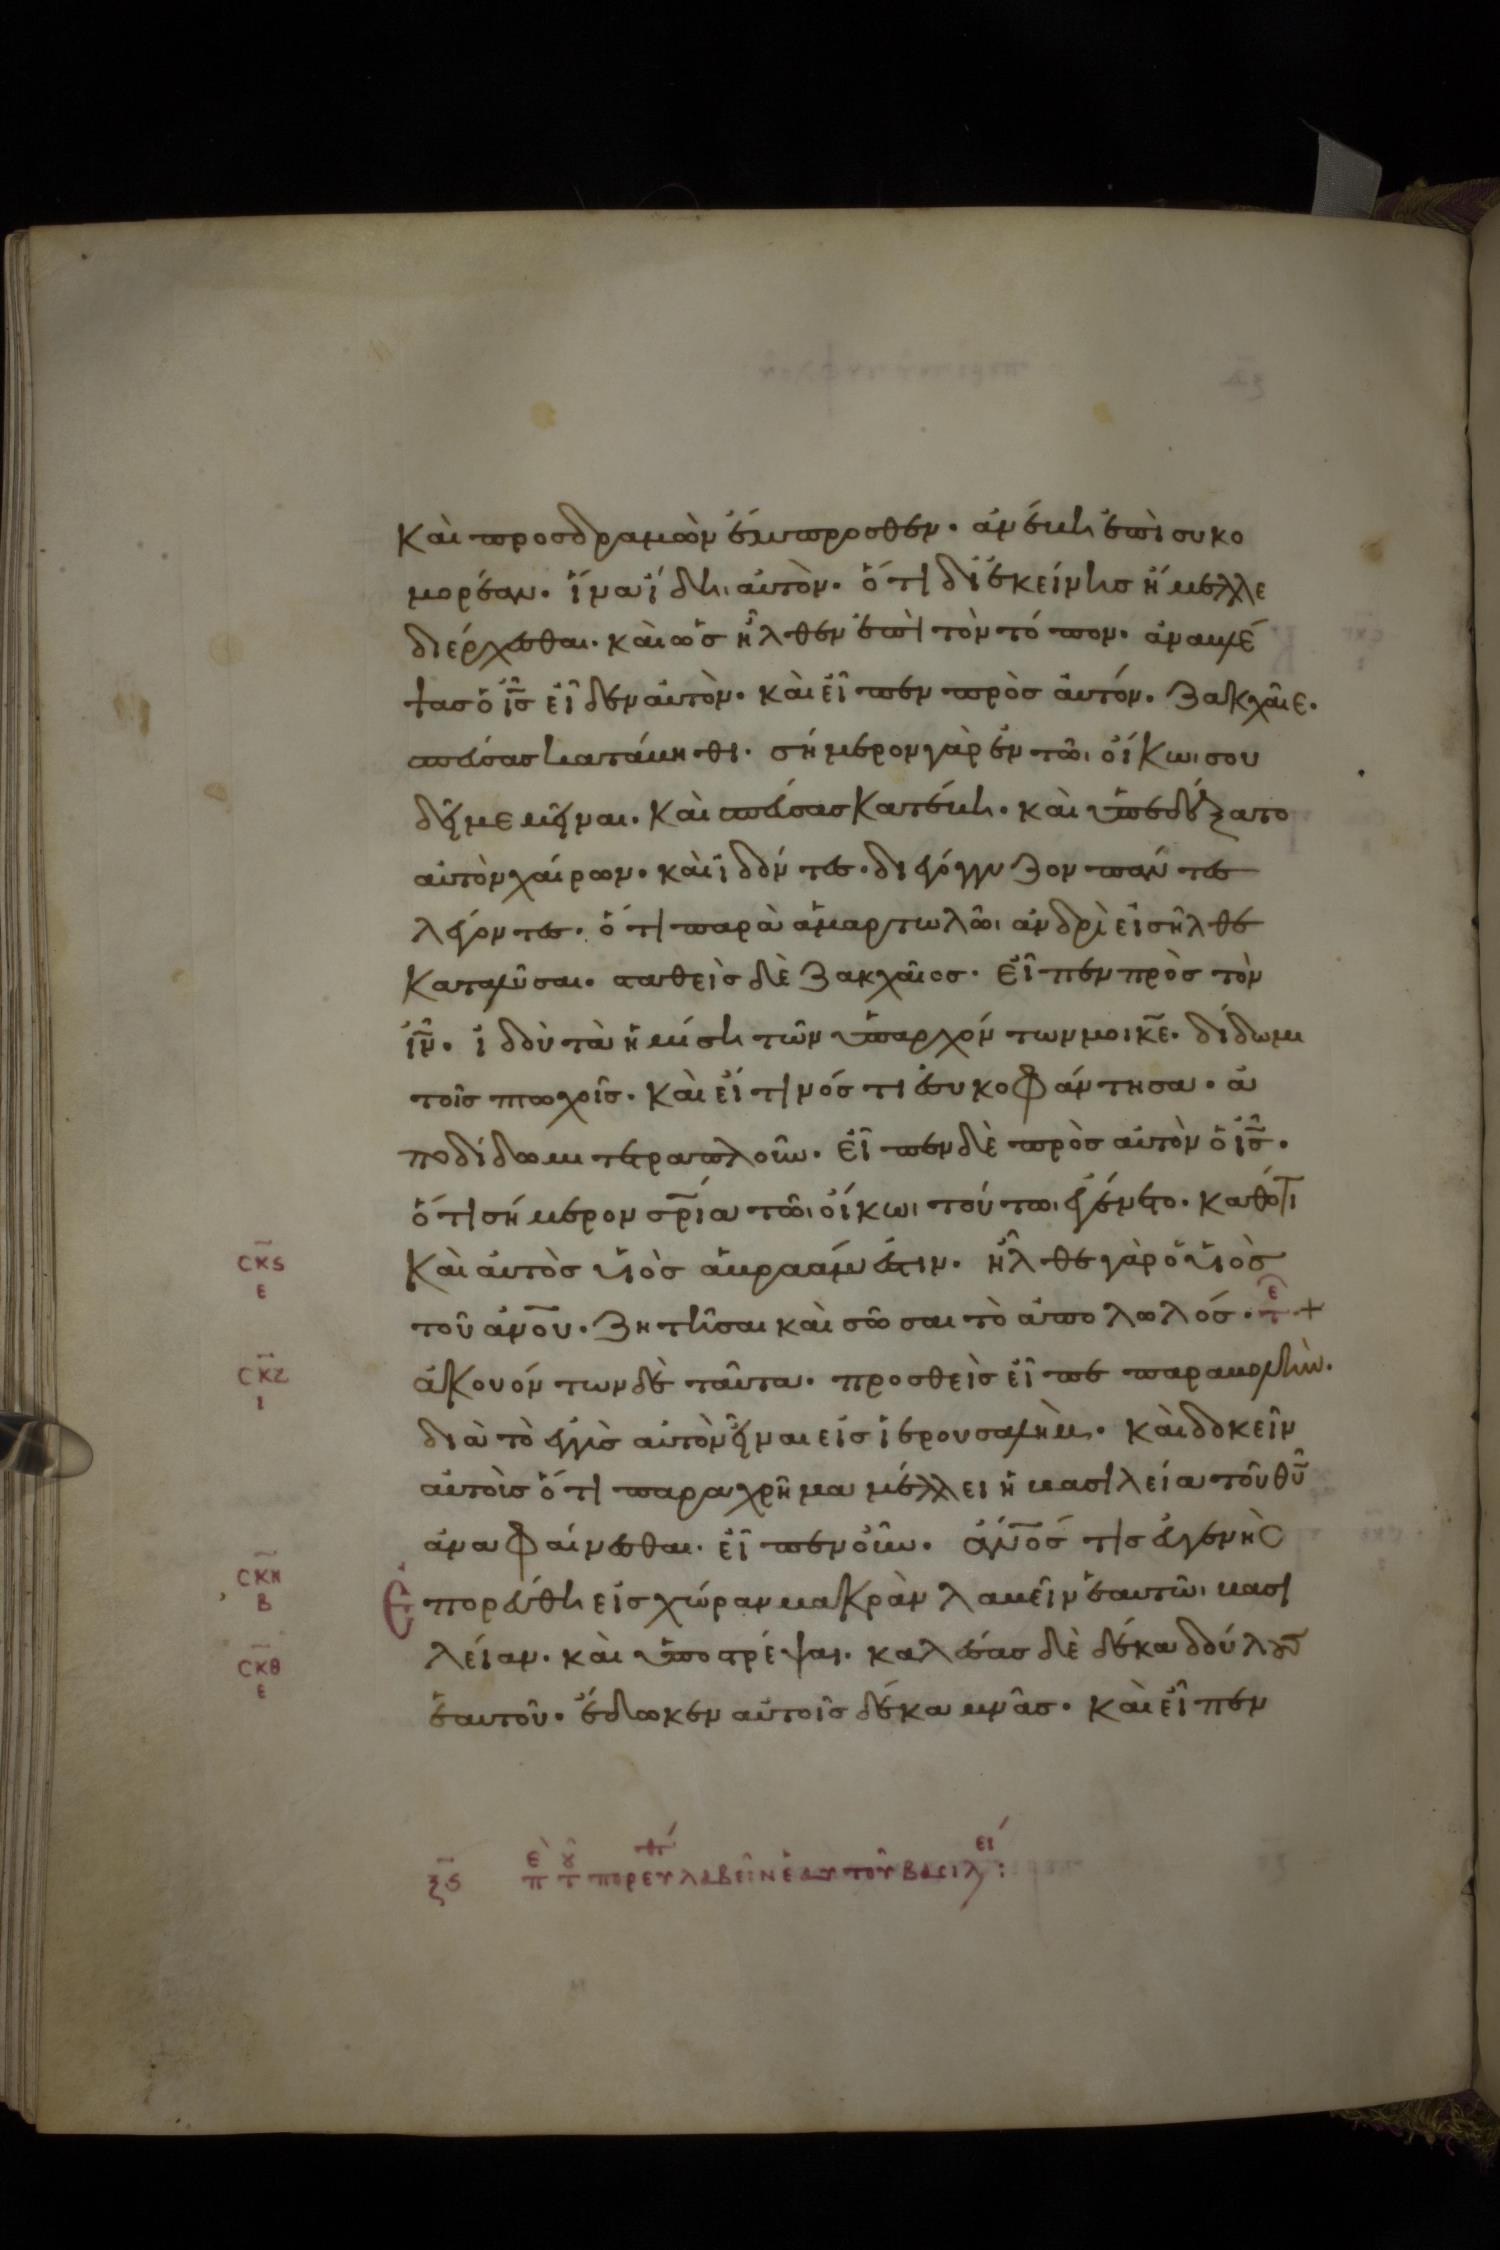 Καὶ προσδραμὼν ἔμπροσθεν. ἀνέβη ἐπὶ συκο
μορέαν. ἵνα ἴδηι αὐτὸν. ὅτι δι ἐκείνησ ἤμελλε
διέρχεσθαι. καὶ ὡσ ἦλθεν ἐπὶ τὸν τόπον. ἀναβλέ
ψασ ὁ ἰ̅σ̅ εἶδεν αὐτὸν. καὶ εἶπεν πρὸσ αὐτόν. Ζακχαῖε.
σπεύσασ κατάβηθι. σήμερον γὰρ ἐν τῶι οἴκωι σου
δεῖ με μεῖναι. Καὶ σπεύσασ κατέβη. καὶ ὑπεδέξατο
αὐτὸν χαίρων. καὶ ἰδόντεσ. διεγόγγυζον πάντεσ
λέγοντεσ. ὅτι παρὰ ἁμαρτωλῶι ἀνδρὶ εἰσῆλθε
Καταλῦσαι. σταθεὶσ δὲ Ζακχαῖοσ. Εἶπεν πρὸσ τὸν
ἰ̅ν̅. ἰδοὺ τὰ ἡμίση τῶν ὑπαρχόντων μοι κ̅ε̅. δίδωμι
τοῖσ πτωχοῖσ. Καὶ εἴ τινόσ τι ἐσυκοφάντησα. ἀ
ποδίδωμι τετραπλοῦν. Εἶπεν δὲ πρὸσ αὐτὸν ὁ ἰ̅σ̅.
ὅτι σήμερον σ̅ρ̅ία τῶι οἴκωι τούτωι ἐγένετο. καθότι
Καὶ αὐτὸσ υἱὸσ ἁβραάμ ἐστιν. ἦλθε γὰρ ὁ υἱὸσ
τοῦ ἀν̅ο̅υ. Ζητῆσαι καὶ σῶσαι τὸ ἀπολωλόσ. τ̅ε̅ +
ἀκουόντων δὲ ταῦτα. προσθεὶσ εἶπε παραβολὴν.
διὰ τὸ ἐγγὺσ αὐτὸν εἶναι εἰσ ἱερουσαλὴμ. καὶ δοκεῖν
αὐτοὶσ ὅτι παραχρῆμα μέλλει ἡ βασιλεία τοῦ θ̅υ̅
ἀναφαίνεσθαι. εἶπεν οὖν. ἄν̅ο̅σ τισ εὐγενὴσ
Ἐπορεύθη εἰσ χώραν μακρὰν λαβεῖν ἑαυτῶι βασι
λείαν. καὶ ὑποστρέψαι. καλέσασ δὲ δέκα δούλουσ
ἑαυτοῦ. ἔδωκεν αὐτοῖσ δέκα μνᾶσ. καὶ εἶπεν
ϲκϛ
ε
ϲκζ
ι
ϲκη
β
ϲκθ
ε
ξϛ πε τοῦ πορευθ λαβεῖν ἑαυτοῦ βασιλεί :